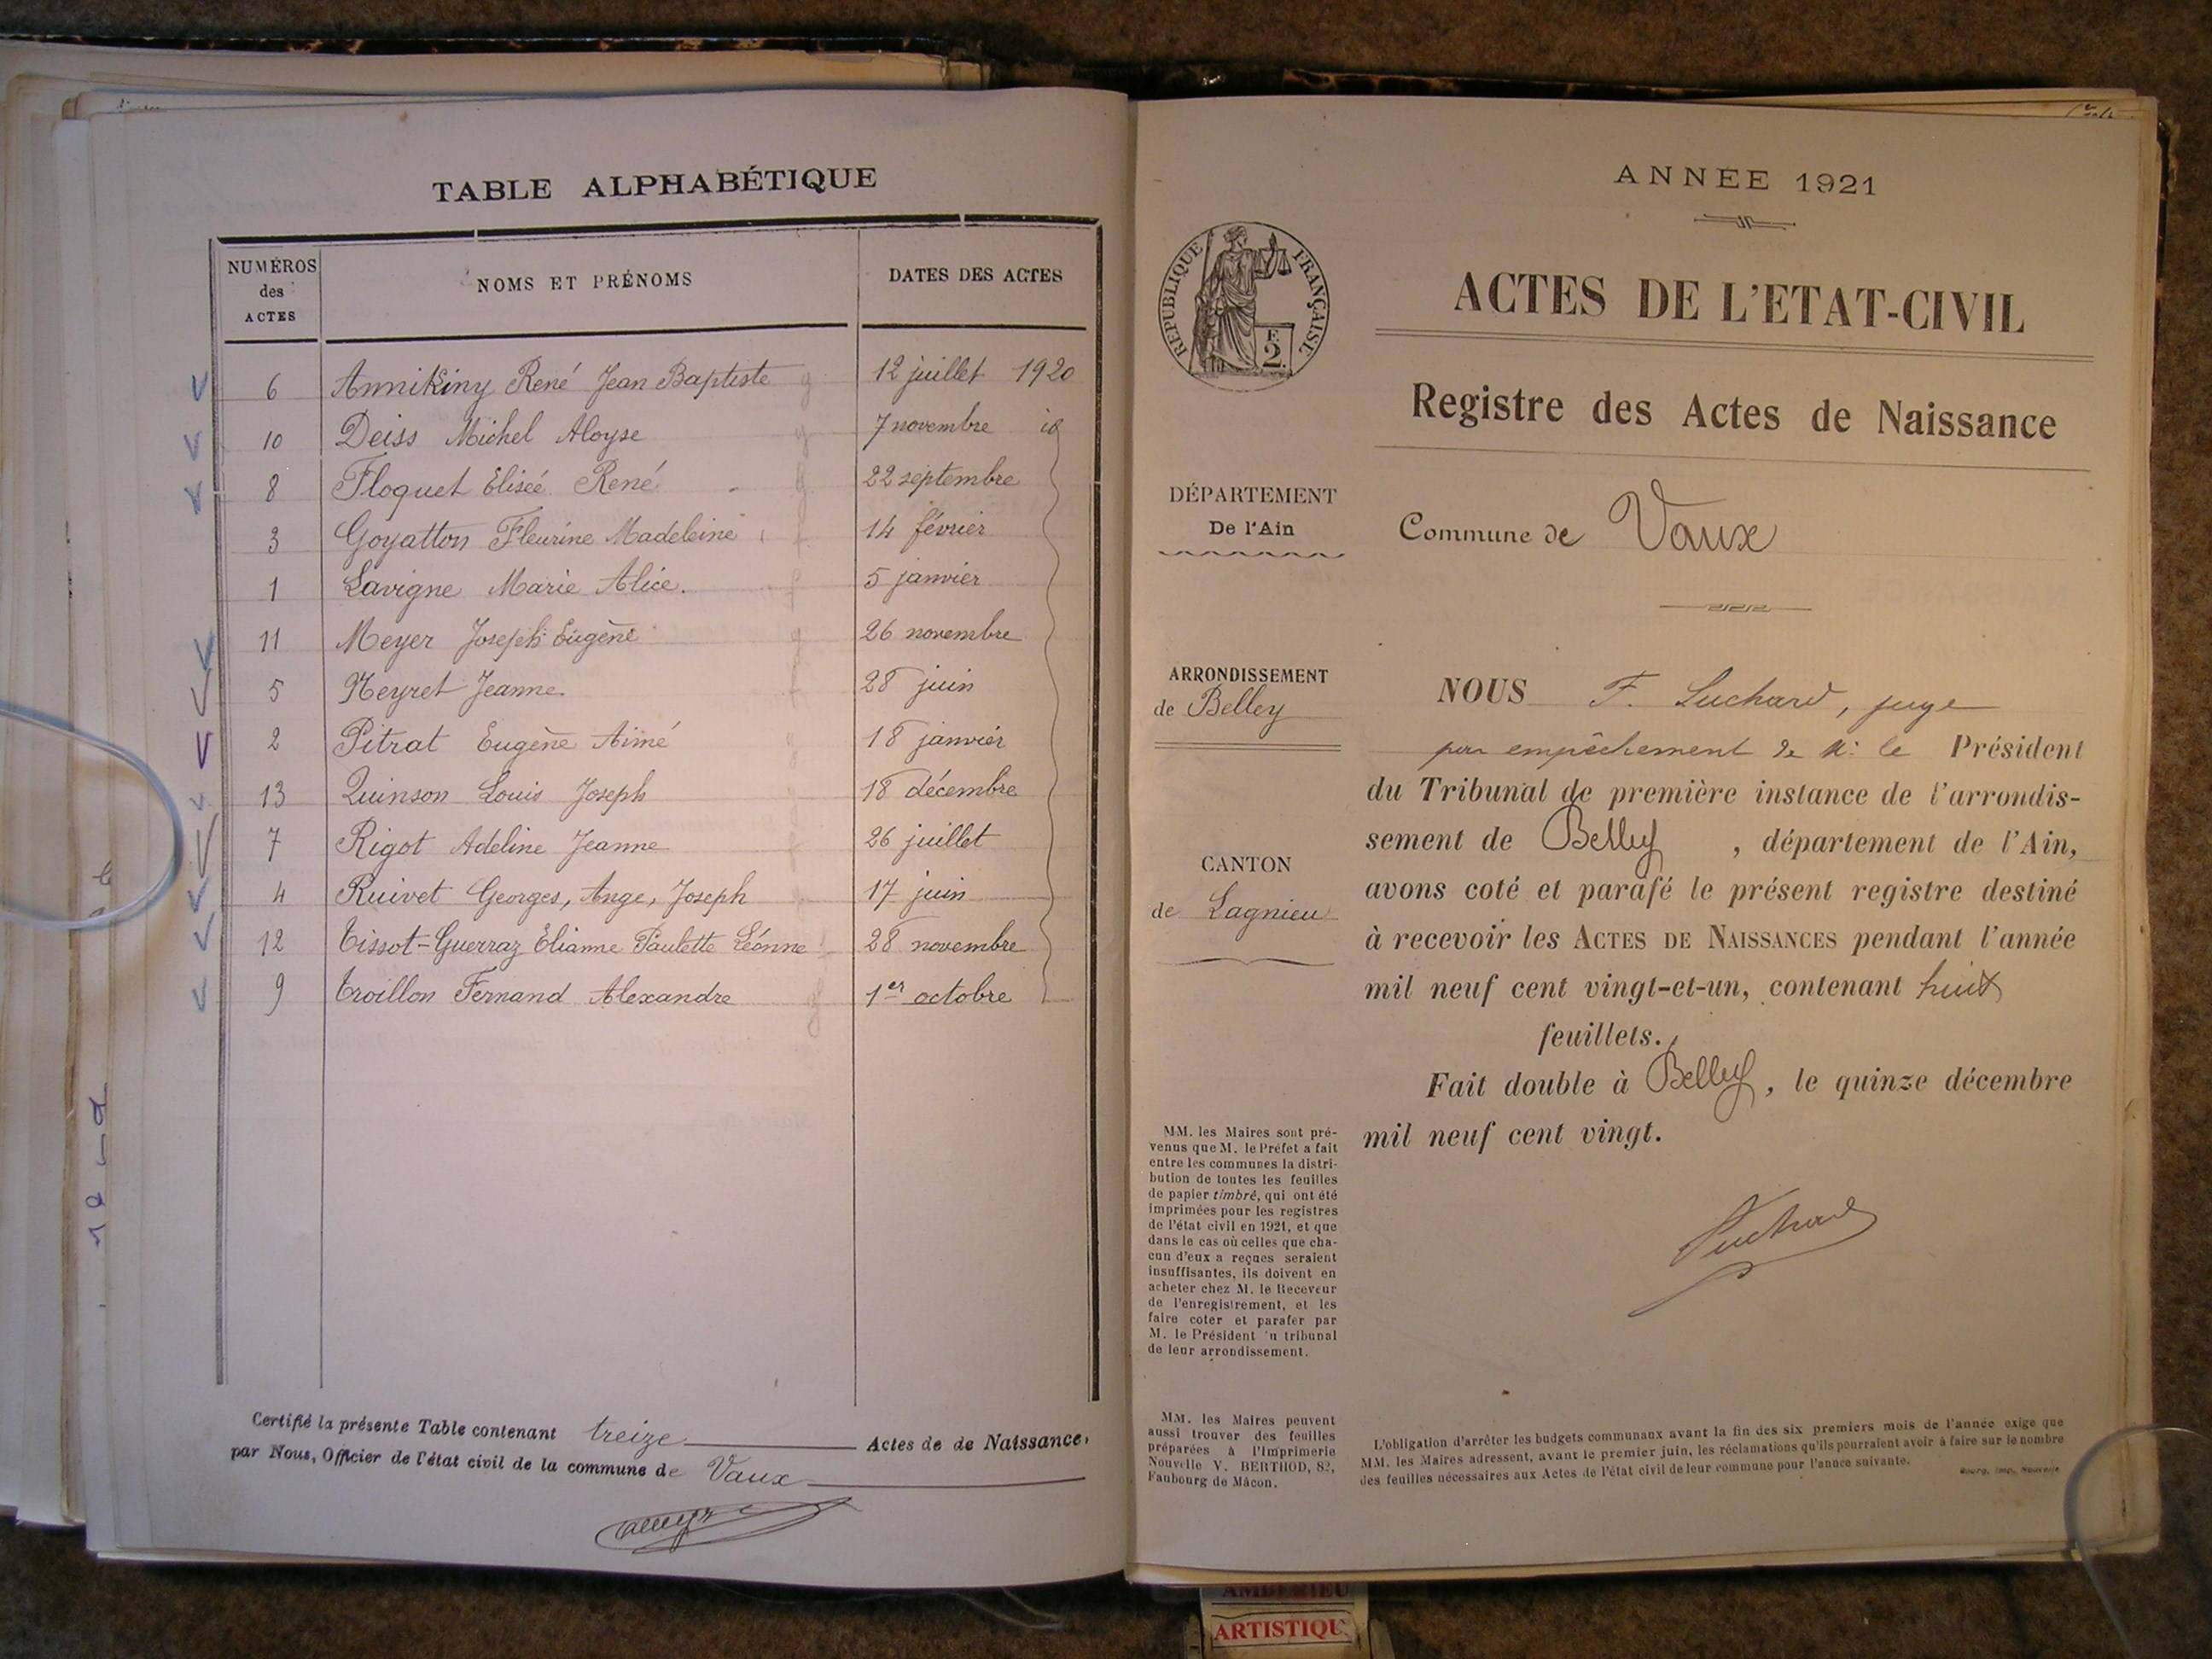 TABLE ALPHABÉTIQUE
NUMÉROS des ACTES NOMS ET PRÉNOMS DATES DES ACTES
6 Annikiny René Jean Baptiste g 12 juillet 1920
10 Deiss Michel Aloyse g 7 novembre id
8 Floquet Elisée René g 22 septembre
3 Goyatton Fleurine Madeleine f 14 février
1 Lavigne Marie Alice. f 5 janvier
11 Meyer Joseph Eugène g 26 novembre
5 Neyret Jeanne f 28 juin
2 Pitrat Eugène Aimé g 18 janvier
13 Quinson Louis Joseph 18 décembre
7 Rigot Adeline Jeanne f 26 juillet
4 Ruivet Georges, Ange, Joseph 17 juin
12 Tissot-Guerraz Elianne Paulette Léonne 28 novembre
9 Troillon Fernand Alexandre g 1er octobre
Certifié la présente Table contenant treize Actes de de Naissance,
par Nous, Officier de l'état civil de la commune de Vaux
ANNÉE 1921
RÉPUBLIQUE FRANÇAISE
F. 2.
ACTES DE L'ETAT-CIVIL
Registre des Actes de Naissance
DÉPARTEMENT
De l'Ain
Commune de Vaux
ARRONDISSEMENT
de Belley
CANTON
de Lagnieu
NOUS F. Luchard, juge
par empêchement de M. le Président
du Tribunal de première instance de l'arrondis-
sement de Belley , département de l'Ain,
avons coté et parafé le présent registre destiné
à recevoir les ACTES DE NAISSANCES pendant l'année
mil neuf cent vingt-et-un, contenant huit
feuillets.
Fait double à Belley, le quinze décembre
mil neuf cent vingt.
Luchard
MM. les Maires sont pré-
venus que M. le Préfet a fait
entre les communes la distri-
bution de toutes les feuilles
de papier timbré, qui ont été
imprimées pour les registres
de l'état civil en 1921, et que
dans le cas où celles que cha-
cun d'eux a reçues seraient
insuffisantes, ils doivent en
acheter chez M. le Receveur
de l'enregistrement, et les
faire coter et parafer par
M. le Président 'u tribunal
de leur arrondissement.
MM. les Maires peuvent
aussi trouver des feuilles
préparées à l'Imprimerie
Nouvelle V. BERTHOD, 82,
Faubourg de Mâcon.
L'obligation d'arrêter les budgets communaux avant la fin des six premiers mois de l'année exige que
MM. les Maires adressent, avant le premier juin, les réclamations qu'ils pourraient avoir à faire sur le nombre
des feuilles nécessaires aux Actes de l'état civil de leur commune pour l'année suivante.
Bourg, Imp. Nouvelle
AMBERIEU
ARTISTIQU